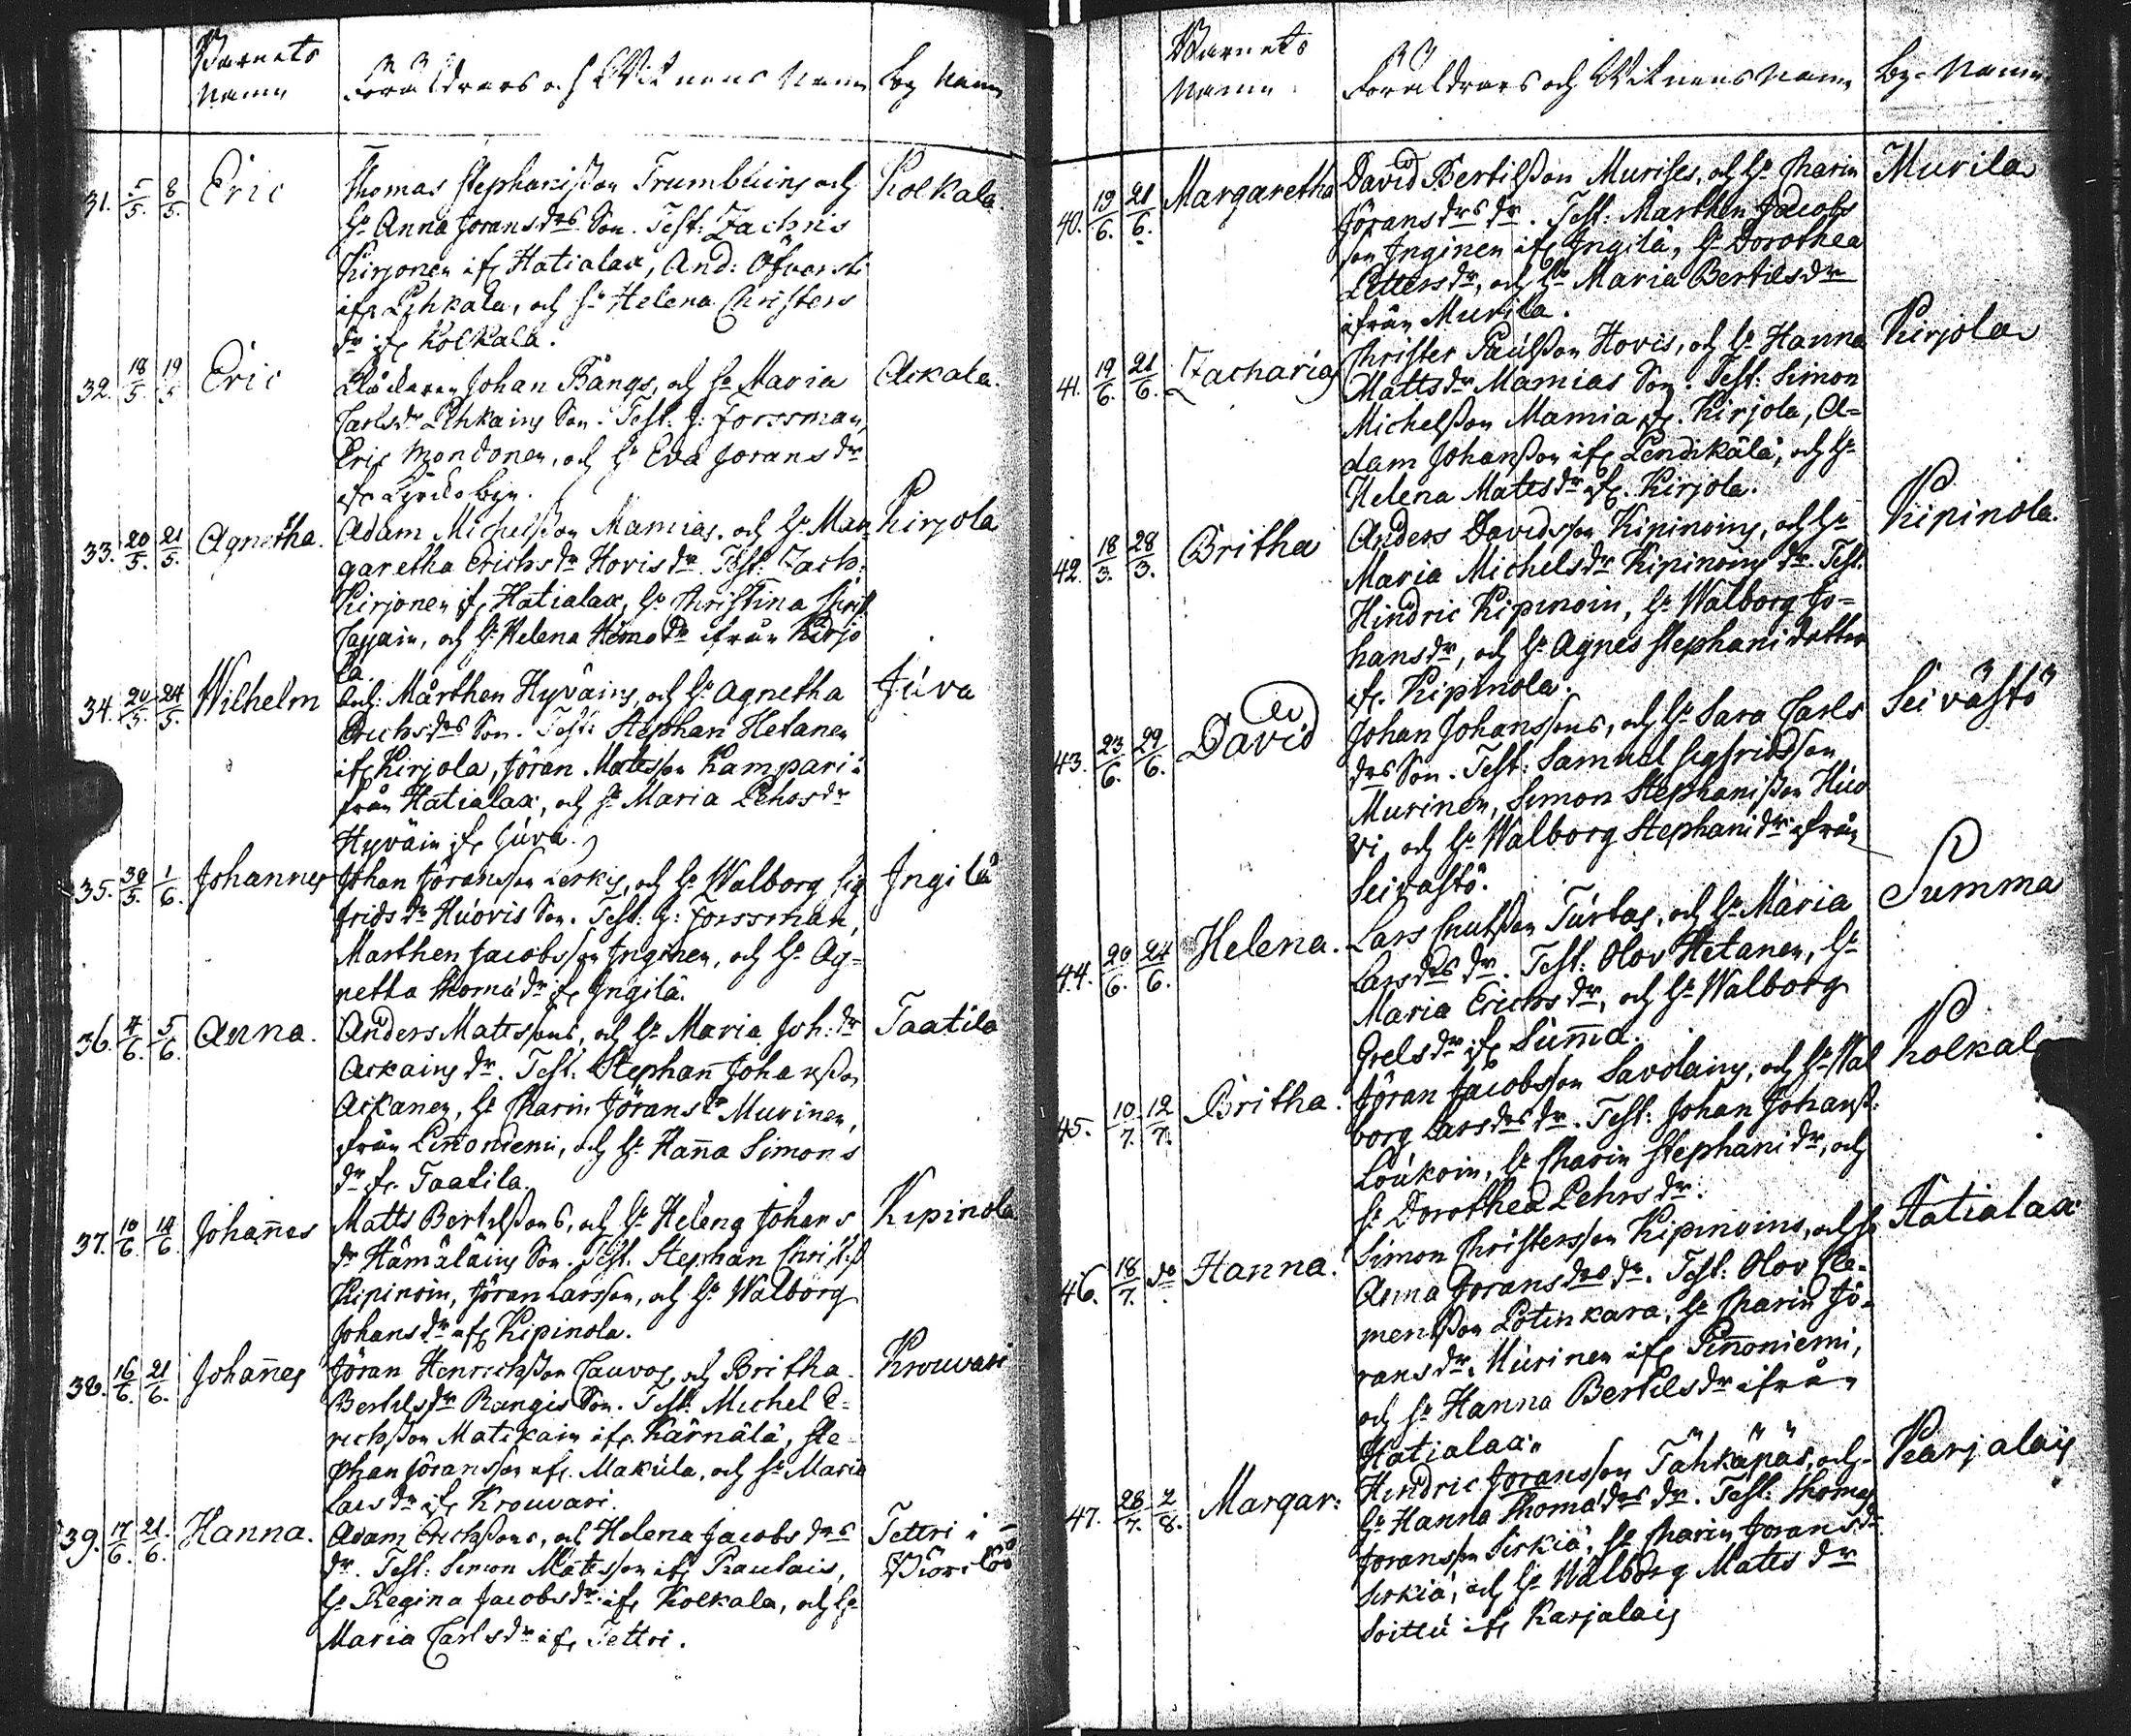 Barnets
Namn
Föräldrars och Witnens Namn
By Namn
31. 5/5. 8/5. Eric
Thomas Stephanisson Trumbluins och
h: Anna Jöransdrs Son. Test: Zachris
Kirjonen ifr Hatialax, And: Öfverst
ifr Pihkala, och h: Helena Christers
dr ifr Kolkala.
Kolkala.
32. 18/5. 19/5 Eric
Johan Bångs, och h: Maria
Carlsdr Pihkains Son. Test: J: Forssman
Eric Mondonen, och h: Eva Joransdr
ifr Kyrckobyn.
Ackala.
33. 20/5. 21/5. Agnetha.
Adam Michelsson Mamias, och h: Mar-
garetha Erichsdr Hovis dr. Test: Zach:
Kirjonen ifr Hatialax, h: Christina
och h: Helena dr ifrån Kirjo
la.
Kirjola
34. 20/5. 24/5. Wilhelm
Mårthen Hyväins, och h: Agnetha
Erichsdrs Son. Test: Stephan Hetanen
ifr Kirjola, Jöran Matsson Kampari i
från Hatialax, och h: Maria Pehrsdr
Hyväin ifr Juva.
Juva
35. 30/5. 1/6. Johannes
Johan Göransson Lerkis, och h: Walborg Sig
fridsdr Huovis Son. Test: J: Forssman,
Marthen Jacobsson Inginen, och h: Ag=
netta Thomædr ifr Ingilä.
Ingilä
36. 4/6. 5/6. Anna.
Anders Matssons, och h: Maria Joh: dr
Ackains dr. Test: Stephan Johansson
Ackanen, h: Charin Jöransdr Murinen,
från Pinnoniemi, och h: Hanna Simons
dr ifr Taatila.
Taatila
37. 10/6 14/6 Johannes
Matts Bertilssons, och h: Helena Johans
dr Hämäläins Son. Test. Stephan Christ:s
Kipinoin, Jöran Larsson, och h: Walborg
Johansdr ifr Kipinola.
Kipinola
38. 16/6. 21/6. Johannes
Jöran Henrichsson Cauvos, och Britha
Bertilsdr Rangis Son. Test: Michel E=
richsson Matikain ifr Kärnälä, Ste=
phan Jöransson ifr. Makula, och h: Maria
Larsdr ifr Krouvari.
Krouvari
39. 17/6. 21/6. Hanna.
Adam Erichssons, och Helena Jacobs drs
dr. Test: Simon Matsson ifr Paulais,
h: Regina Jacobsdr ifr Kolkala, och h:
Maria Carlsdr ifr Tettri.
Tettri i
Björckö
Barnets
Namn
Föräldrars och Witnens Namn
By-Namn
40. 19/6. 21/6. Margaretha
David Bertilsson Murises, och h: Charin
Jöransdrs dr. Test: Marthen Jacobs
son Inginen ifr Ingilä, h: Dorothea
Pettersdr, och h: Maria Bertilsdr
ifrån Murila.
Murila
41. 19/6. 21/6. Zacharias
Christer Paulsson Hovis, och h: Hanna
Mattsdr Mamias Son. Test: Simon
Michelsson Mamia ifr. Kirjola, A=
dam Johansson ifr Pendikälä, och h:
Helena Matsdr ifr. Kirjola.
Kirjola
42. 18/3. 28/3. Britha
Anders Davidsson Kipinoins, och h:
Maria Michelsdr Kipinoins dr. Test.
Hindric Kipinoin, h: Walborg Jo=
hansdr, och h: Agnes Stephanidotter
ifr. Kipinola.
Kipinola.
43. 23/6. 29/6. David
Johan Johanssons, och h: Sara Carls
drs Son. Test: Samuel Sigfridsson
Murinen, Simon Stephanisson Huo
vi, och h: Walborg Stephanidr ifrån
Seivästö.
Seivästö
44. 20/6. 24/6. Helena.
Lars Knutsson Turtas, och h: Maria
Larsdrs dr. Test: Olov Hetanen, h:
Maria Erichsdr, och h: Walborg
Grelsdr ifr Summa.
Summa
45. 10/7. 12/7. Britha.
Jöran Jacobsson Savolains, och h: Wal
borg Larsdrs dr. Test: Johan Johanss:
Loukoin, h: Charin Stephanidr, och
h: Dorothea Pehrsdr.
Kolkal
46. 18/7. do Hanna.
Simon Christersson Kipinoins, och h:
Anna Joransdrs dr. Test: Olov Cle=
mentsson Lotinkara, h: Charin Jö=
ransdr. Murinen ifr Pinnoniemi,
och h: Hanna Bertilsdr ifrån
Hatialax.
Hatialax
47. 28/7. 2/8. Margar:
Hindric Joransson Tähkäpäs, och
h: Hanna Thomædrs dr. Test: Thomas
Joransson Sirkiä, h: Charin Joransdr
Sirkiä, och h: Walborg Mats dr
Soittu ifr Karjalais
Karjalais